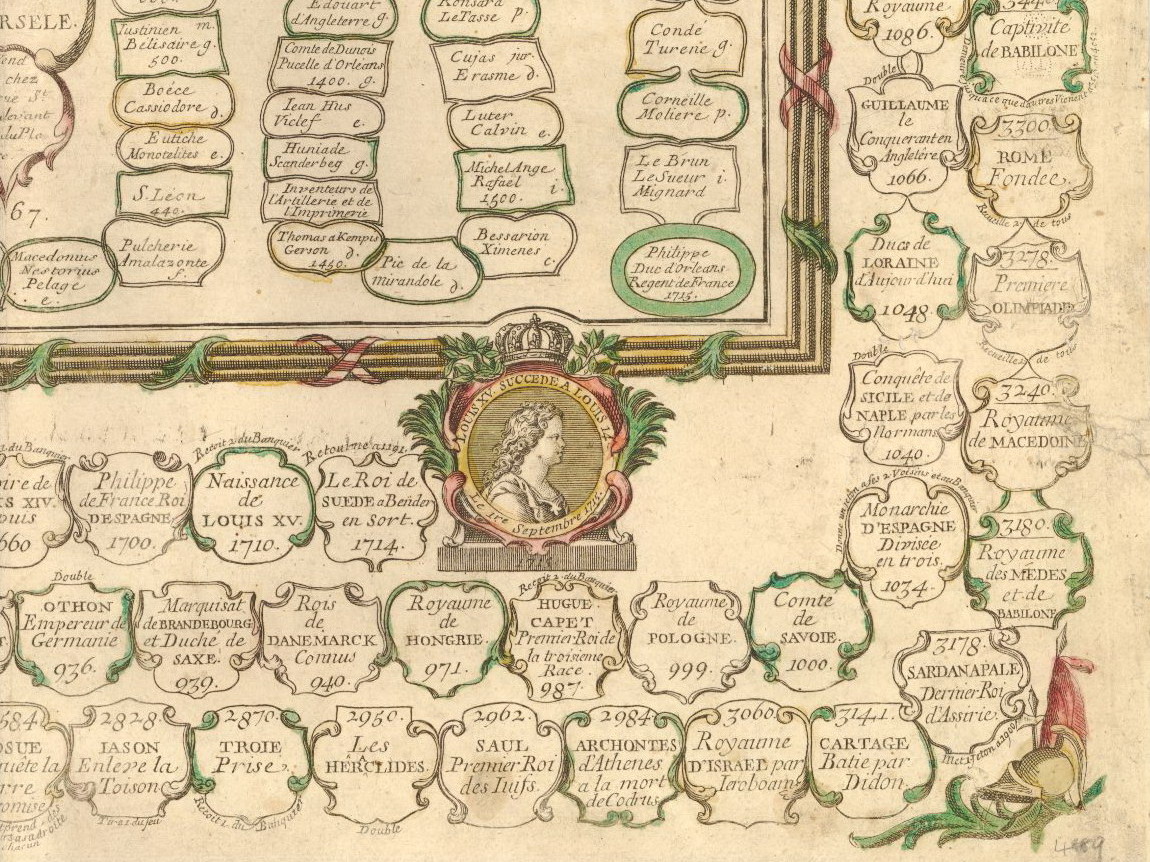 RSELE.
chez
67.
Justinien m.
Bélisaire g.
500.
Boéce
Cassiodore d.
Eutiche
Monotelites e.
S. Léon
440.
Pulcherie
Amalazonte
f.
Macedonius
Nestorius
Pelage
e.
Edouart
d'Angleterre g.
Comte de Dunois
Pucelle d'Orleans
1400. g.
Iean Hus
Viclef e.
Huniade
Scanderbeg g.
Inventeurs de
l'Artillerie et de
l'Imprimerie
Thomas a Kempis
Gerson d.
1450.
Pic de la
mirandole d.
Ronsard
LeTasse p.
Cujas jur.
Erasme d.
Luter
Calvin e.
Michel Ange
Rafael i.
1500.
Bessarion
Ximenes
c.
Condé
Turene g.
Corneille
Moliere p.
Le Brun
Le Sueur i.
Mignard
Philippe
Duc d'Orleans
Regent de France
1715.
Royaume
1086.
Double
GUILLAUME
le
Conquerant en
Angletere
1066.
Ducs de
LORAINE
d'Aujourd'hui
1048.
Double
Conquête de
SICILE et de
NAPLE par les
Normans
1040.
Donne un jeton a ses 2 Voisins et au Banquier
Monarchie
D'ESPAGNE
Divisée
en trois.
1034.
344
Captivité
de BABILONE
3300.
ROME
Fondée.
Recueille 2 de tous
3278.
Premiere
OLIMPIADE
Recueille 2 de tous
3240.
Royaume
de MACEDOINE
3180.
Royaume
des MÉDES
et de
BABILONE
3178.
SARDANAPALE
Dernier Roi
d'Assirie.
LOUIS XV. SUCCEDE A LOUIS 14
le 1re Septembre 1715.
1715
2 du Banquier
ire de
S XIV.
puis
660
Philippe
de France Roi
DESPAGNE
1700.
Recoit 2 du Banquier
Naissance
de
LOUIS XV.
1710.
Retourne a 1191
Le Roi de
SUEDE a Bender
en Sort.
1714.
Double
OTHON
Empereur de
Germanie
936.
Marquisat
de BRANDEBOURG
et Duché de
SAXE.
939.
Rois
de
DANEMARCK
Connus
940.
Royaume
de
HONGRIE.
971.
Recoit 2 du Banquier
HUGUE
CAPET
Premier Roi de
la troisieme
Race.
987.
Royaume
de
POLOGNE.
999.
Comte
de
SAVOIE.
1000.
584
OSUE
quête la
rre
omise
2828.
IASON
Enleve la
Toison
Tire 2 du jeu
2870.
TROIE
Prise.
Recoit 2 du Banquier
2950.
Les
HERCLIDES.
Double
2962.
SAUL
Premier Roi
des Iuifs.
2984.
ARCHONTES
d'Athenes
a la mort
de Codrus
3060.
Royaume
D'ISRAEL par
Iaroboam
3141.
CARTAGE
Batie par
Didon.